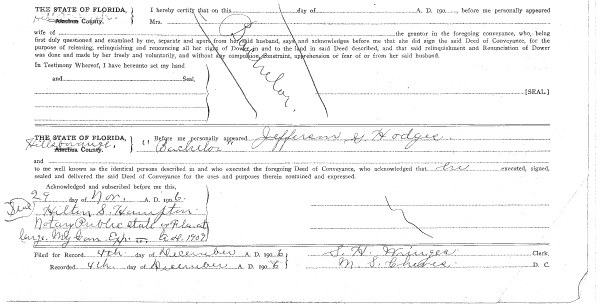 THE STATE OF FLORIDA, I hereby certify that on this day of A. D. 190 , before me personally appeared
Alachua County. Mrs.
wife of the grantor in the foregoing conveyance, who, being
first duly questioned and examined by me, separate and apart from her said husband, says and acknowledges before me that she did sign the said Deed of Conveyance, for the
purpose of releasing, relinquishing and renouncing all her right of Dower in and to the land in said Deed described, and that said relinquishment and Renunciation of Dower
was done and made by her freely and voluntarily, and without any compulsion, constraint, apprehension or fear of or from her said husband.
Bachelor.
In Testimony Whereof, I have hereunto set my hand
and Seal,
[SEAL]
THE STATE OF FLORIDA, Before me personally appeared Jefferson G. Hodges
Hillsborough
Alachua County. "Bachelor"
and
to me well known as the identical persons described in and who executed the foregoing Deed of Conveyance, who acknowledged that he executed, signed,
sealed and delivered the said Deed of Conveyance for the uses and purposes therein contained and expressed.
Acknowledged and subscribed before me this,
29 day of Nov. A. D. 1906.
(Seal) Hilton S. Hampton
Notary Public State of Fla. at
large. My Com. Exp. A.D. 1909
Filed for Record 4th day of December A. D. 1906 S. H. Wienges Clerk.
Recorded 4th day of December A. D. 1906 M. S. Cheves D. C